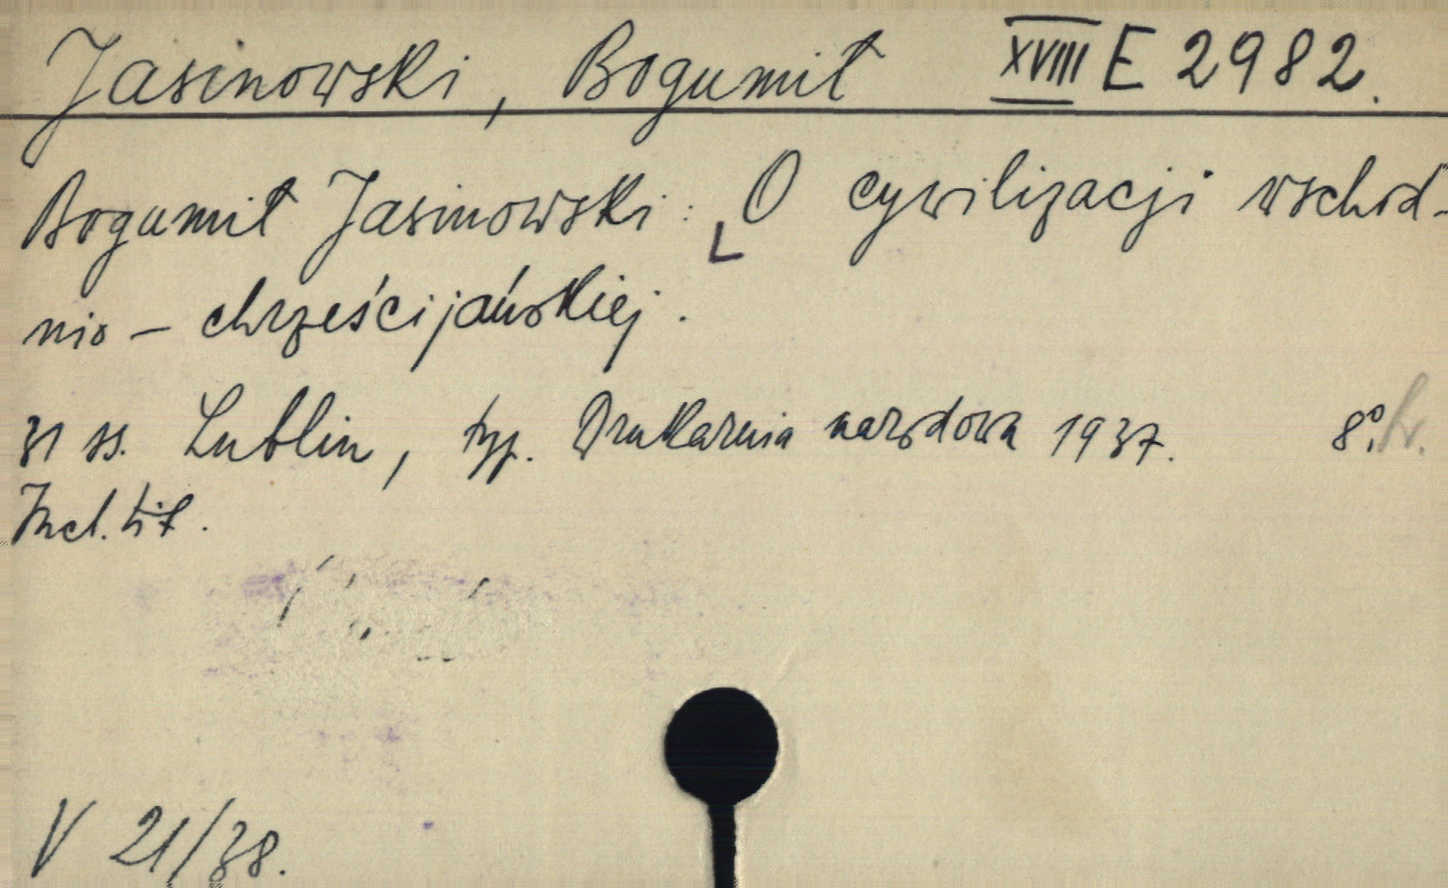 Jasinowski, Bogumił XVIII E 2982.
Bogumił Jasinowski: O cywilizacji wschod-
nio - chrześcijańskiej.
31 ss. Lublin, typ. Drukarnia narodowa 1937. 8°. br.
Incl. tit.
V 21/38.